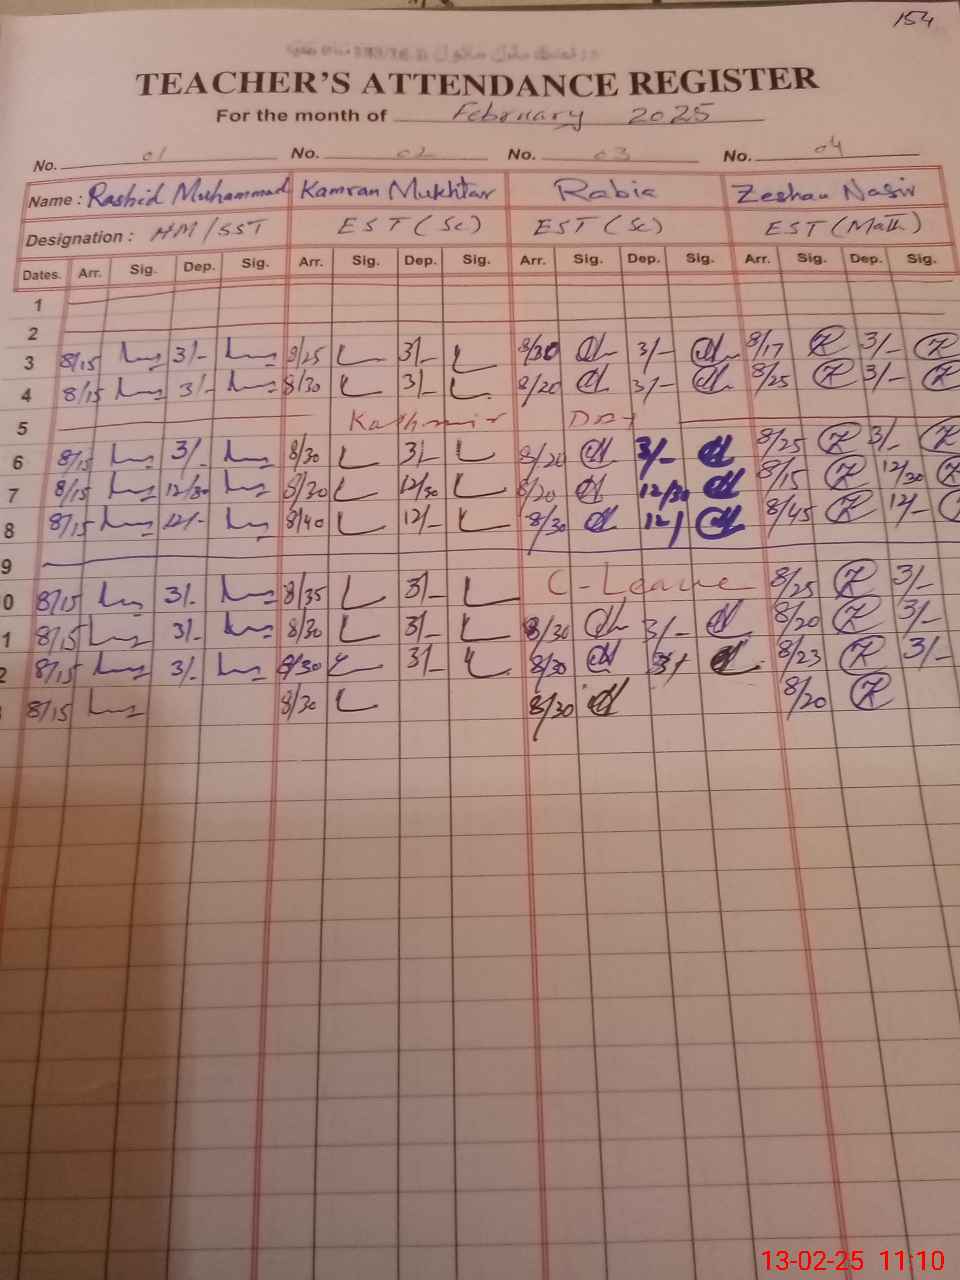 154
TEACHER'S ATTENDANCE REGISTER
For the month of February 2025
No. 01 No. 02 No. 03 No. 04
Name: Rashid Muhammad Kamran Mukhtar Rabia Zeshan Nasir
Designation: HM/SST EST (Sc) EST (Sc) EST (Math)
Dates. Arr. Sig. Dep. Sig. Arr. Sig. Dep. Sig. Arr. Sig. Dep. Sig. Arr. Sig. Dep. Sig.
1
2
3 8/15 3/- 8/25 3/- 8/30 3/- 8/17 3/-
4 8/15 3/- 8/30 3/- 8/20 3/- 8/25 3/-
5 Kashmir Day
6 8/15 3/- 8/30 3/- 8/20 3/- 8/25 3/-
7 8/15 12/30 8/30 12/30 8/20 12/30 8/15 12/30
8 8/15 12/- 8/40 12/- 8/30 12/ 8/45 12/-
9
0 8/15 3/- 8/35 3/- C-Leave 8/25 3/-
1 8/15 3/- 8/30 3/- 8/30 3/- 8/20 3/-
2 8/15 3/- 8/30 3/- 8/30 3/ 8/23 3/-
8/15 8/30 8/30 8/20
13-02-25 11:10